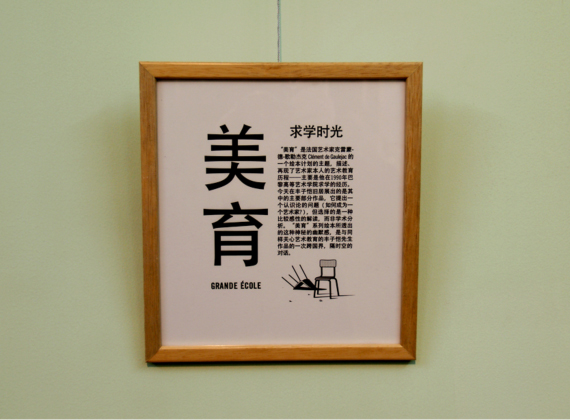 美
育
GRANDE ÉCOLE
求学时光
“美育”是法国艺术家克雷蒙-
德·歌勒杰克 Clément de Gaulejac 的
一个绘本计划的主题，描述、
再现了艺术家本人的艺术教育
历程——主要是他在1990年巴
黎高等艺术学院求学的经历。
今天在丰子恺旧居展出的是其
中的主要部分作品，它提出一
个认识论的问题（如何成为一
个艺术家?），但选择的是一种
比较感性的解读，而非学术分
析。“美育”系列绘本所透出
的这种神秘的幽默感，是与同
样关心艺术教育的丰子恺先生
作品的一次跨国界、隔时空的
对话。